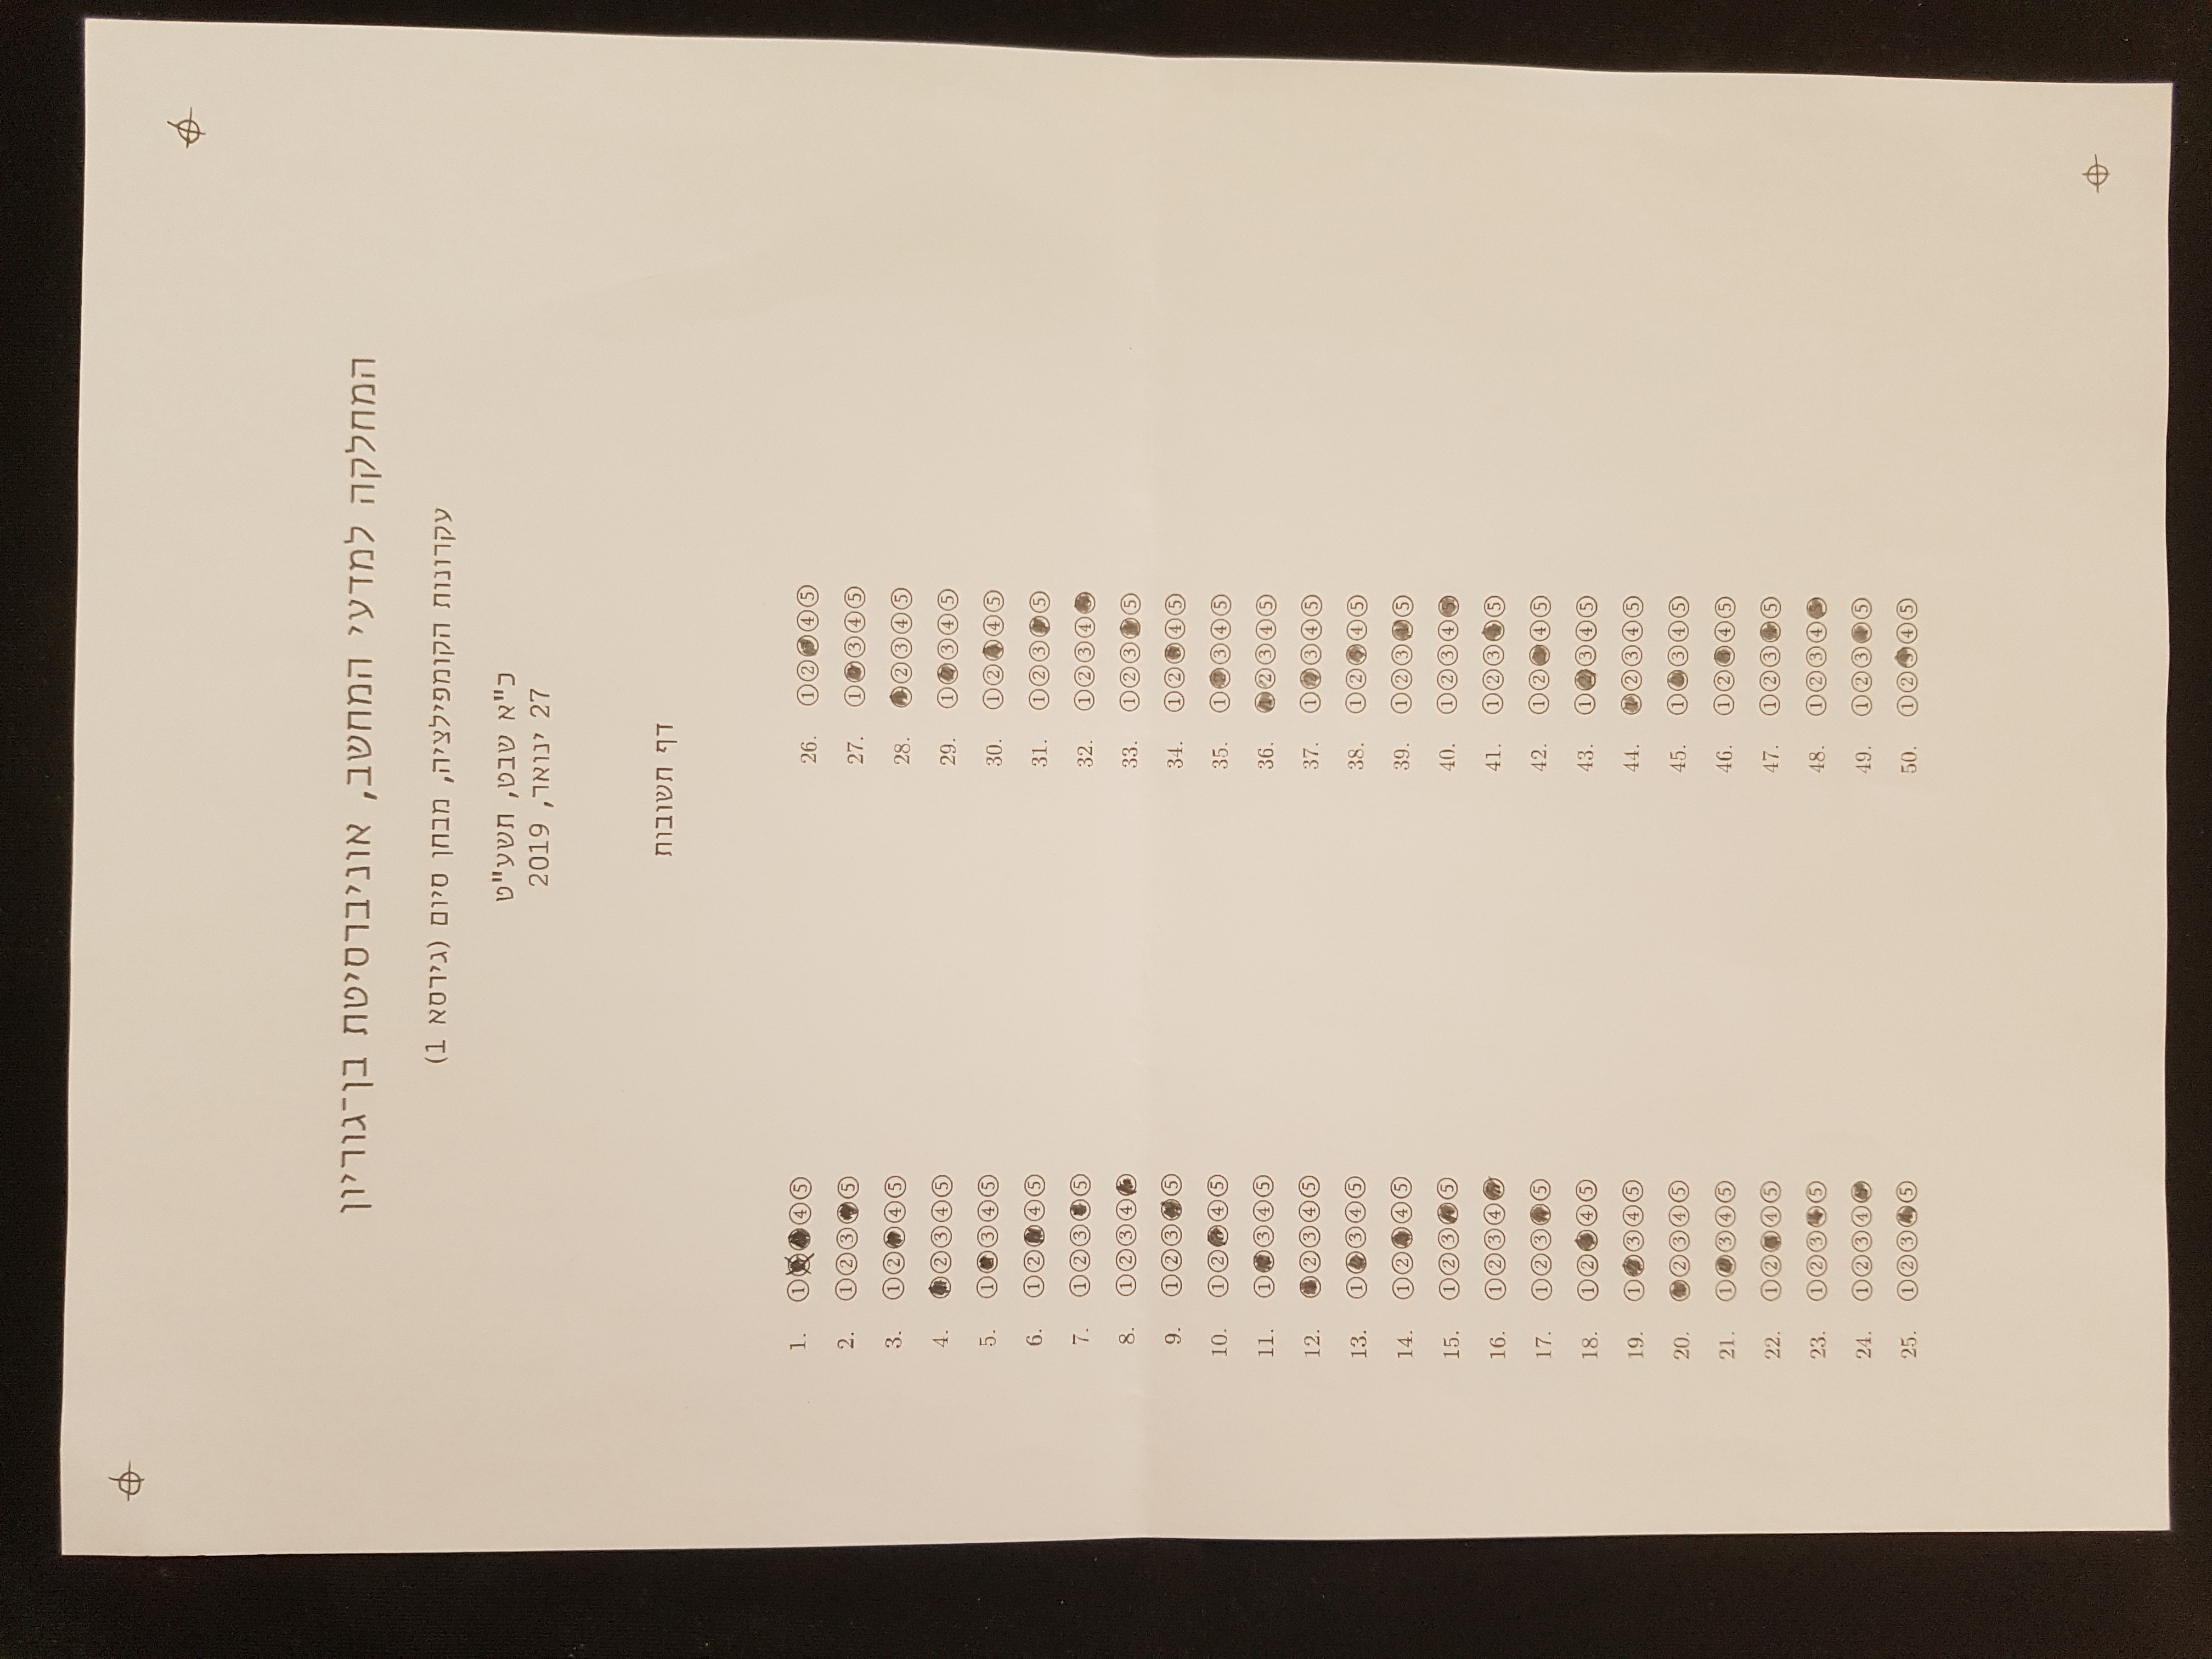 המחלקה למדעי המחשב, אוניברסיטת בן־גוריון
עקרונות הקומפילציה, מבחן סיום (גירסא 1)
כ"א שבט, תשע"ט
27 ינואר, 2019
דף תשובות
1. ① ④ ⑤
2. ① ② ③ ⑤
3. ① ② ④ ⑤
4. ② ③ ④ ⑤
5. ① ③ ④ ⑤
6. ① ② ④ ⑤
7. ① ② ③ ⑤
8. ① ② ③ ④
9. ① ② ③ ⑤
10. ① ② ④ ⑤
11. ① ③ ④ ⑤
12. ② ③ ④ ⑤
13. ① ③ ④ ⑤
14. ① ② ④ ⑤
15. ① ② ③ ⑤
16. ① ② ③ ④
17. ① ② ③ ⑤
18. ① ② ④ ⑤
19. ① ③ ④ ⑤
20. ② ③ ④ ⑤
21. ① ③ ④ ⑤
22. ① ② ④ ⑤
23. ① ② ③ ⑤
24. ① ② ③ ④
25. ① ② ③ ⑤
26. ① ② ④ ⑤
27. ① ③ ④ ⑤
28. ② ③ ④ ⑤
29. ① ③ ④ ⑤
30. ① ② ④ ⑤
31. ① ② ③ ⑤
32. ① ② ③ ④
33. ① ② ③ ⑤
34. ① ② ④ ⑤
35. ① ③ ④ ⑤
36. ② ③ ④ ⑤
37. ① ③ ④ ⑤
38. ① ② ④ ⑤
39. ① ② ③ ⑤
40. ① ② ③ ④
41. ① ② ③ ⑤
42. ① ② ④ ⑤
43. ① ③ ④ ⑤
44. ② ③ ④ ⑤
45. ① ③ ④ ⑤
46. ① ② ④ ⑤
47. ① ② ③ ⑤
48. ① ② ③ ④
49. ① ② ③ ⑤
50. ① ② ④ ⑤